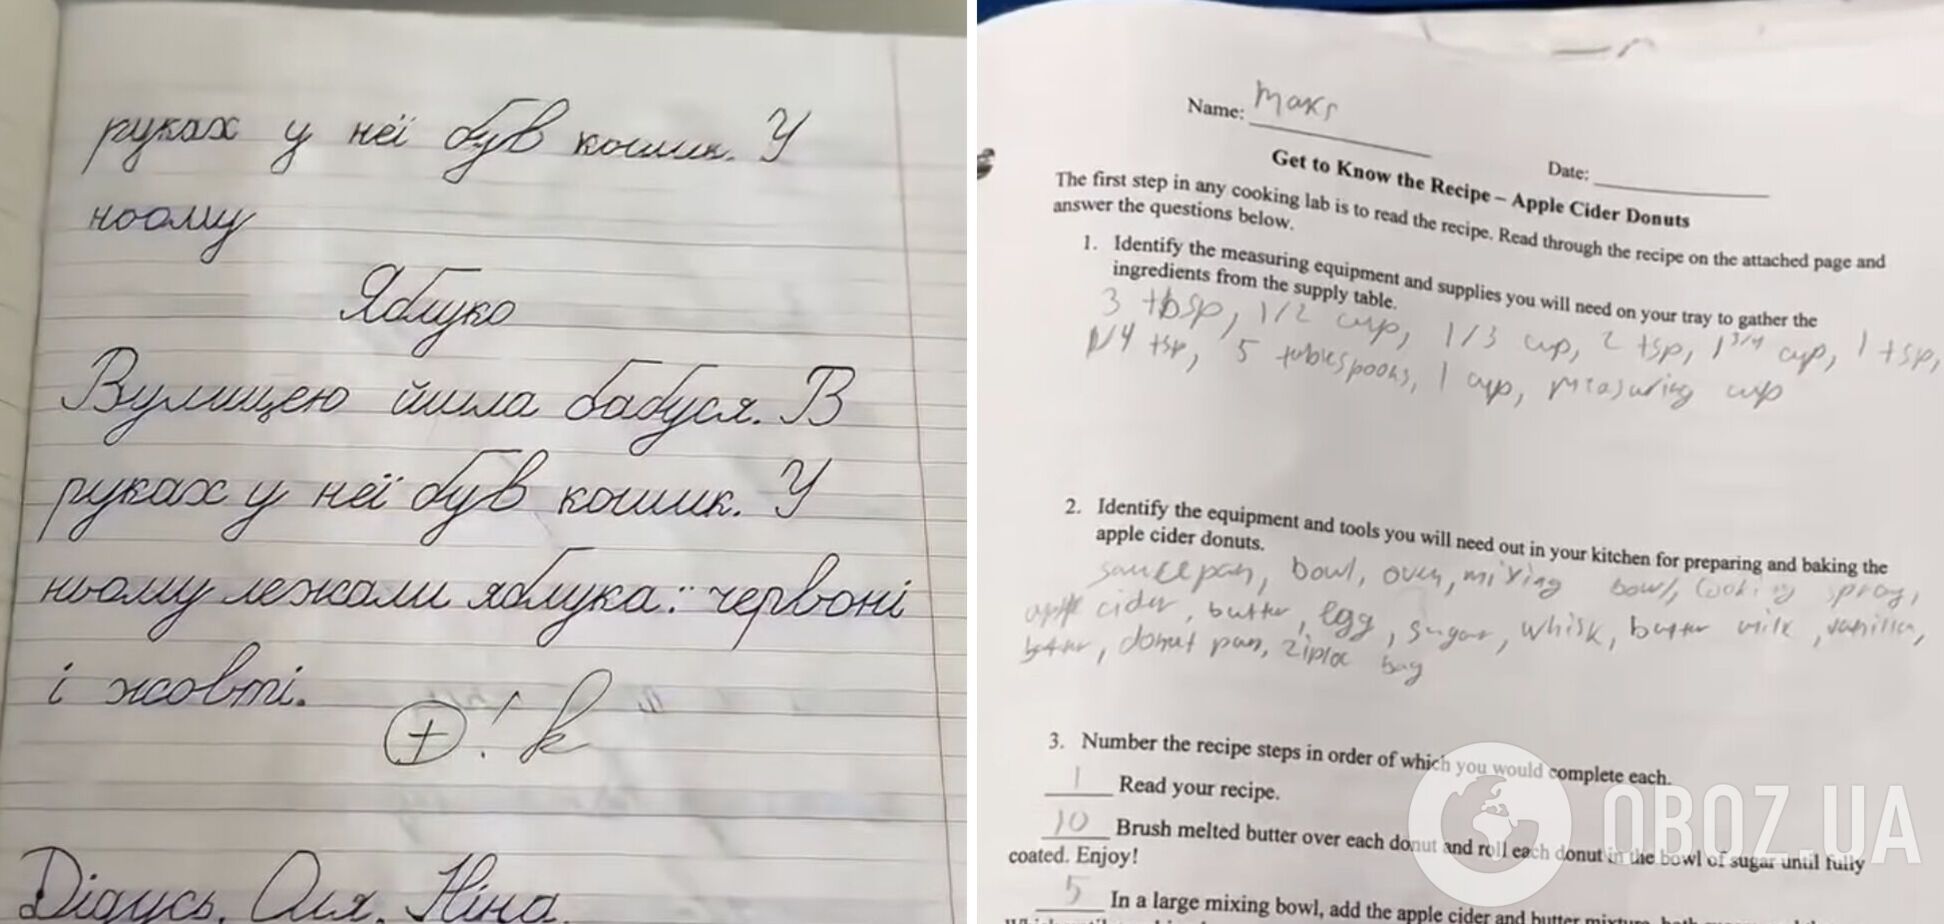 руках у неї був кошик. У
ньому
Яблуко
Вулицею йшла бабуся. В
руках у неї був кошик. У
ньому лежали яблука: червоні
і жовті.
+ ! k
Дідусь, Оля, Ніна.
Name: Maks
Date:
Get to Know the Recipe – Apple Cider Donuts
The first step in any cooking lab is to read the recipe. Read through the recipe on the attached page and
answer the questions below.
1. Identify the measuring equipment and supplies you will need on your tray to gather the
ingredients from the supply table.
3 tbsp, 1/2 cup, 1/3 cup, 2 tsp, 1 3/4 cup, 1 tsp,
1/4 tsp, 5 tablespoons, 1 cup, measuring cup
2. Identify the equipment and tools you will need out in your kitchen for preparing and baking the
apple cider donuts.
saucepan, bowl, oven, mixing bowl, cooking spray,
apple cider, butter, egg, sugar, whisk, butter milk, vanilla,
donut pan, ziploc bag
3. Number the recipe steps in order of which you would complete each.
1 Read your recipe.
10 Brush melted butter over each donut and roll each donut in the bowl of sugar until fully
coated. Enjoy!
5 In a large mixing bowl, add the apple cider and butter mixture, both
OBOZ.UA